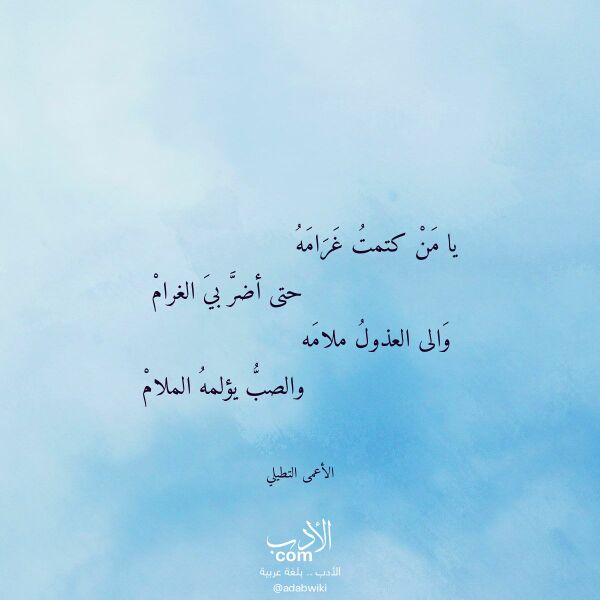 يا مَنْ كتمتُ غَرَامَهُ
حتى أضرَّ بيَ الغرامْ
وَالى العذولُ ملامَه
والصبُّ يؤلمهُ الملامْ
الأعمى التطيلي
الأدب
com
الأدب .. بلغة عربية
@adabwiki